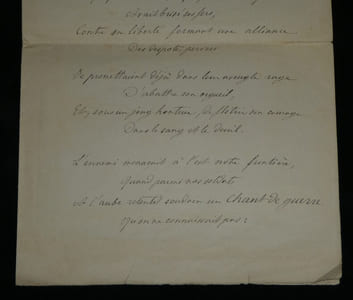 Avait brisé ses fers,
Contre sa liberté formant une alliance
Des despotes pervers
Se promettaient déjà dans leur aveugle rage
D'abattre son orgueil,
Et, sous un joug honteux, de flétrir son courage
Dans le sang et le deuil.
L'ennemi menaçait à l'est notre frontière,
quand parmi nos soldats
A l'aube retentit soudain un chant de guerre
qu'on ne connaissait pas: